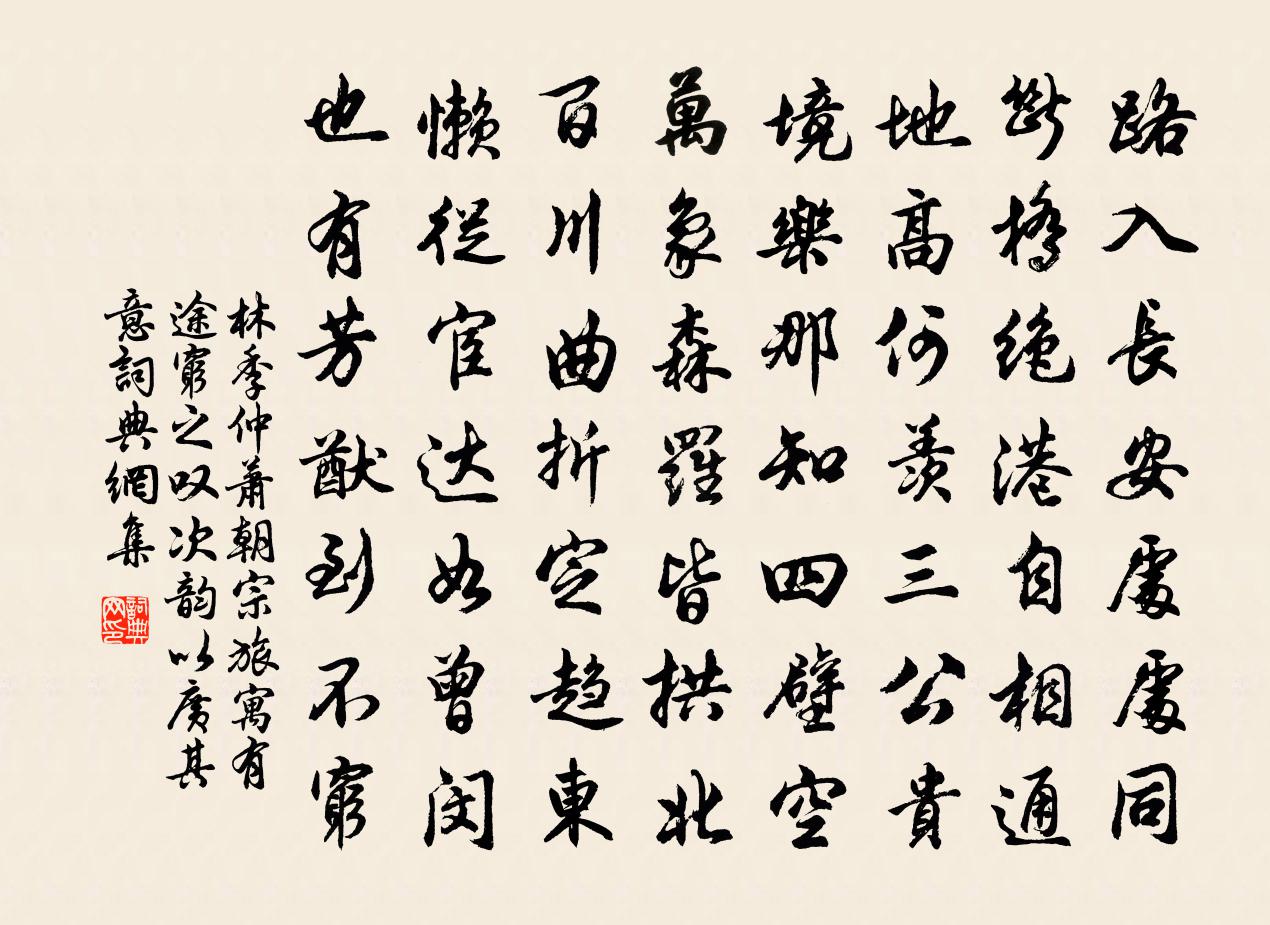 路入長安處處同
斷橋絕港自相通
地高何羨三公貴
境樂那知四壁空
萬象森羅皆拱北
百川曲折定趨東
懶從宦达如曾閔
也有芳猷到不窮
林季仲蕭朝宗旅寓有
途窮之叹次韵以廣其
意詞典網集
詞典网印